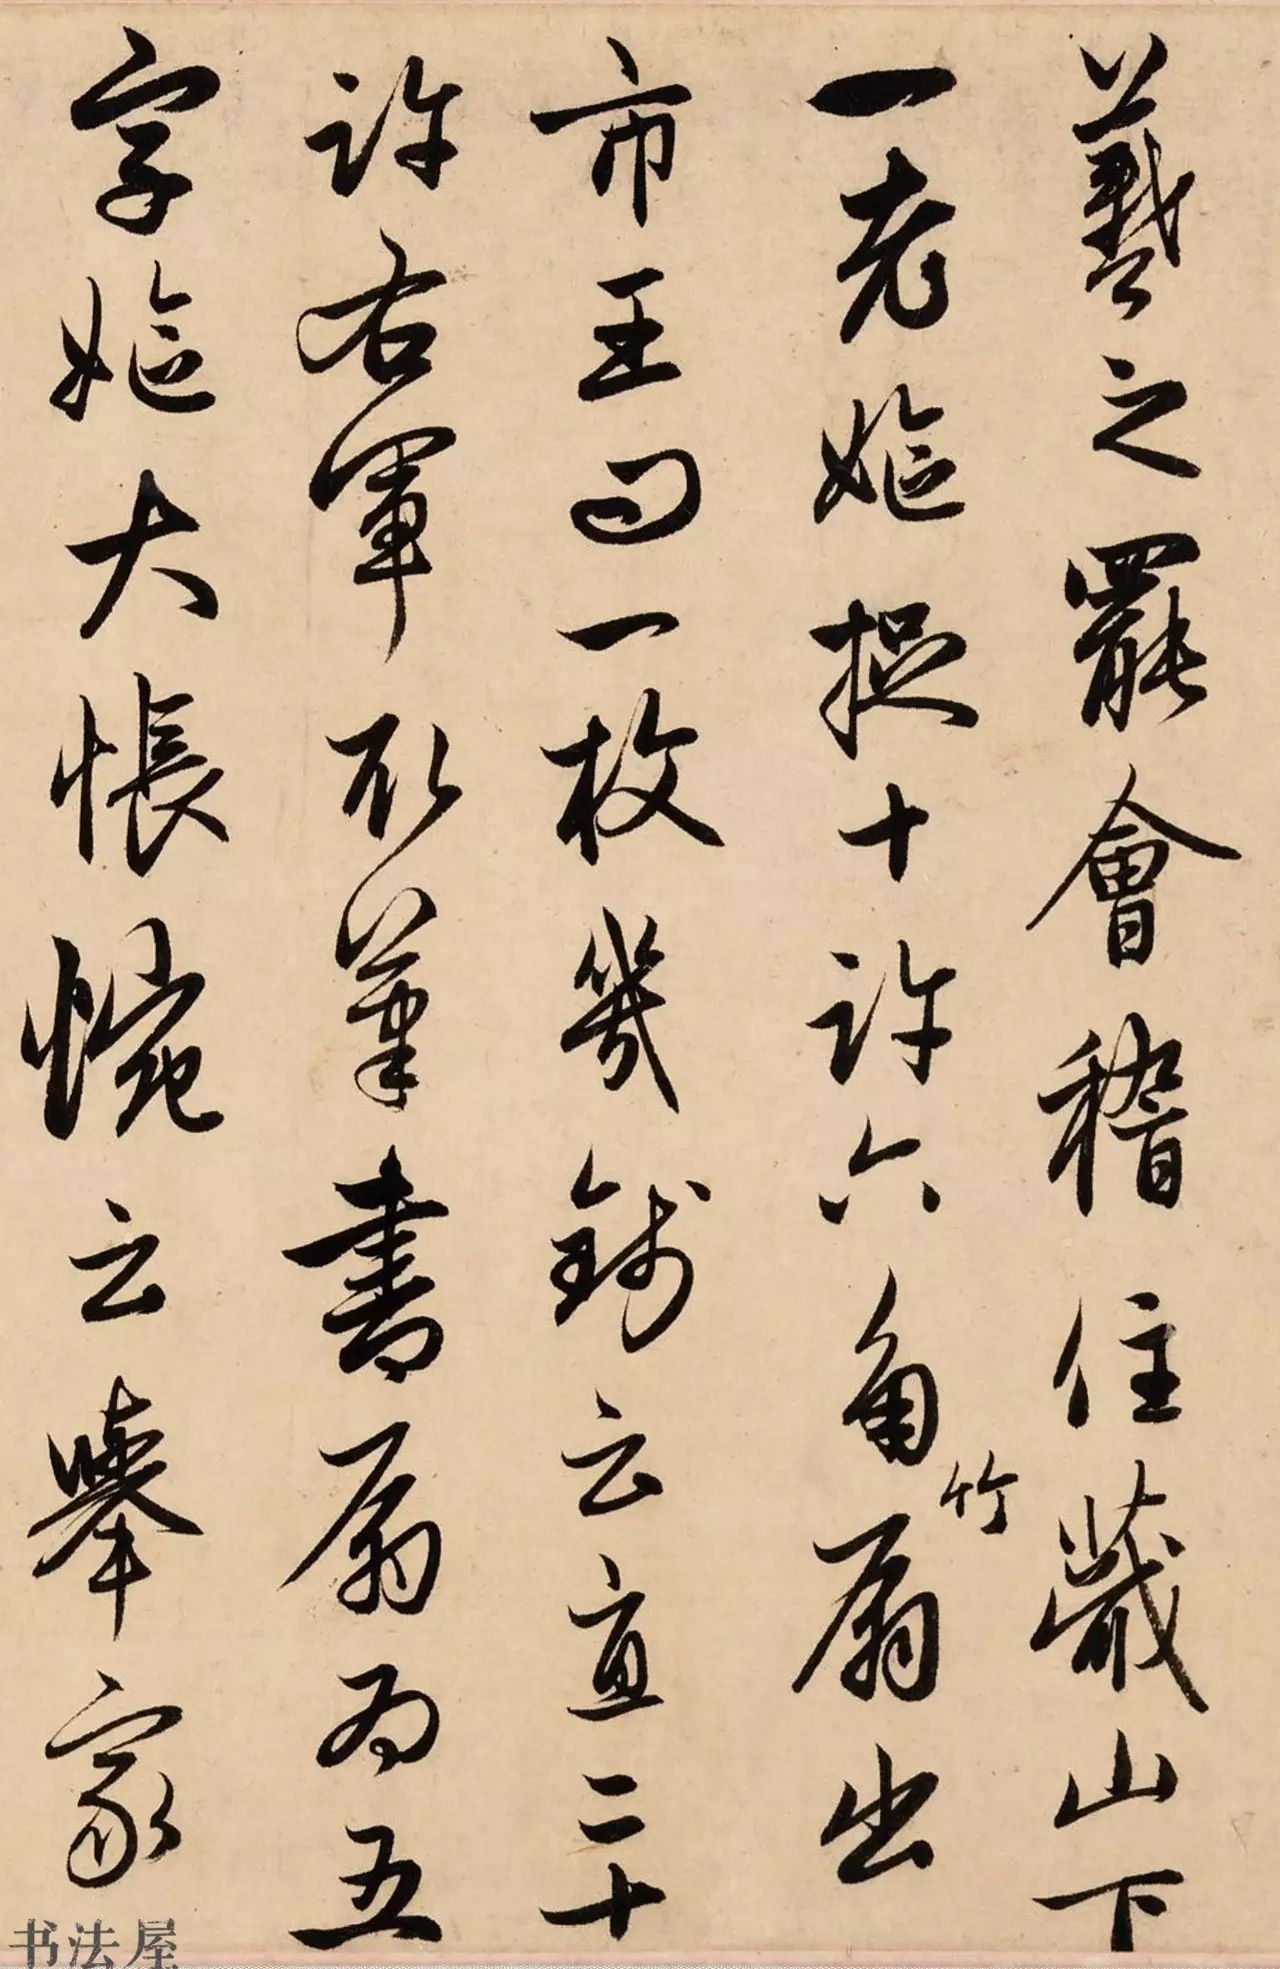 羲之罷會稽住蕺山下
一老嫗捉十許六角竹扇出
市王曰一枚幾錢云直二十
許右軍取筆書扇扇為五
字嫗大悵惋云舉家
书法屋